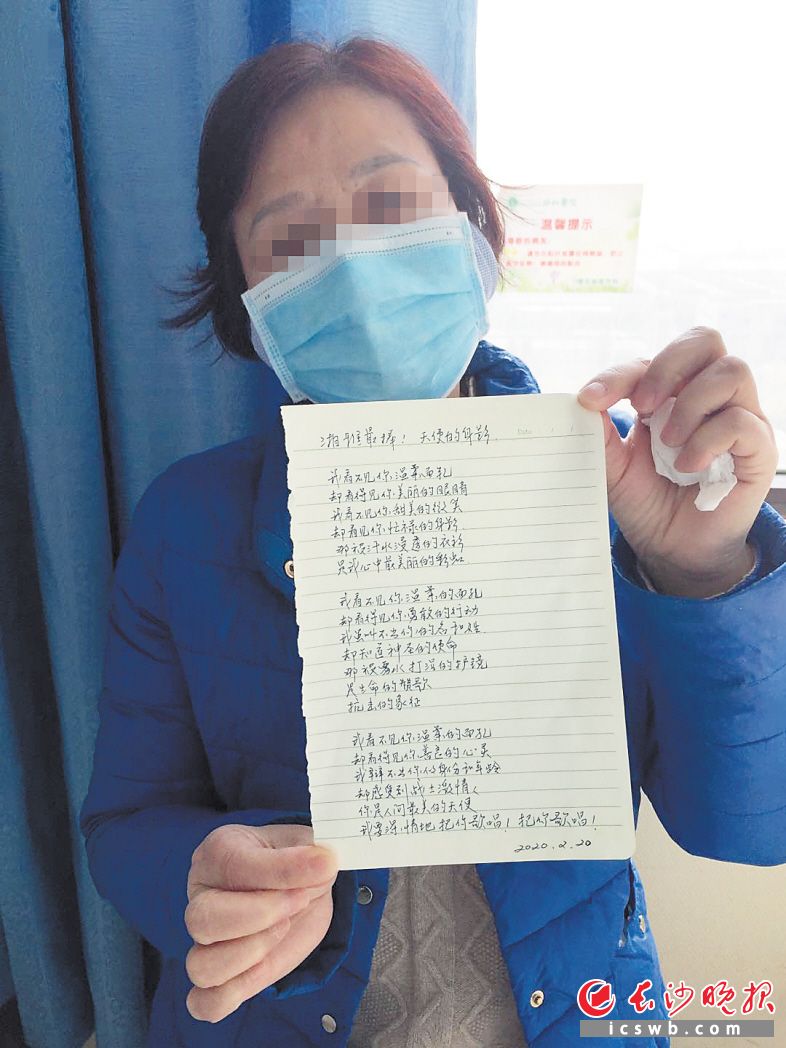 温馨提示
湘雅最棒！ 天使的身影
Date / /
我看不见你温柔面孔
却看得见你美丽的眼睛
我看不见你甜美的微笑
却看见你忙禄的身影
那被汗水浸透的衣衫
是我心中最美丽的彩虹
我看不见你温柔的面孔
却看得见你勇敢的行动
我虽叫不出你的名和姓
却知道神圣的使命
那被雾水打湿的护境
是生命的赞歌
抗击的象征
我看不见你温柔的面孔
却看得见你善良的心灵
我辩不出你的身份和年龄
却感受到战士激情
你是人间最美的天使
我要深情地把你歌唱！把你歌唱！
2020.2.20
长沙晚报
icswb.com